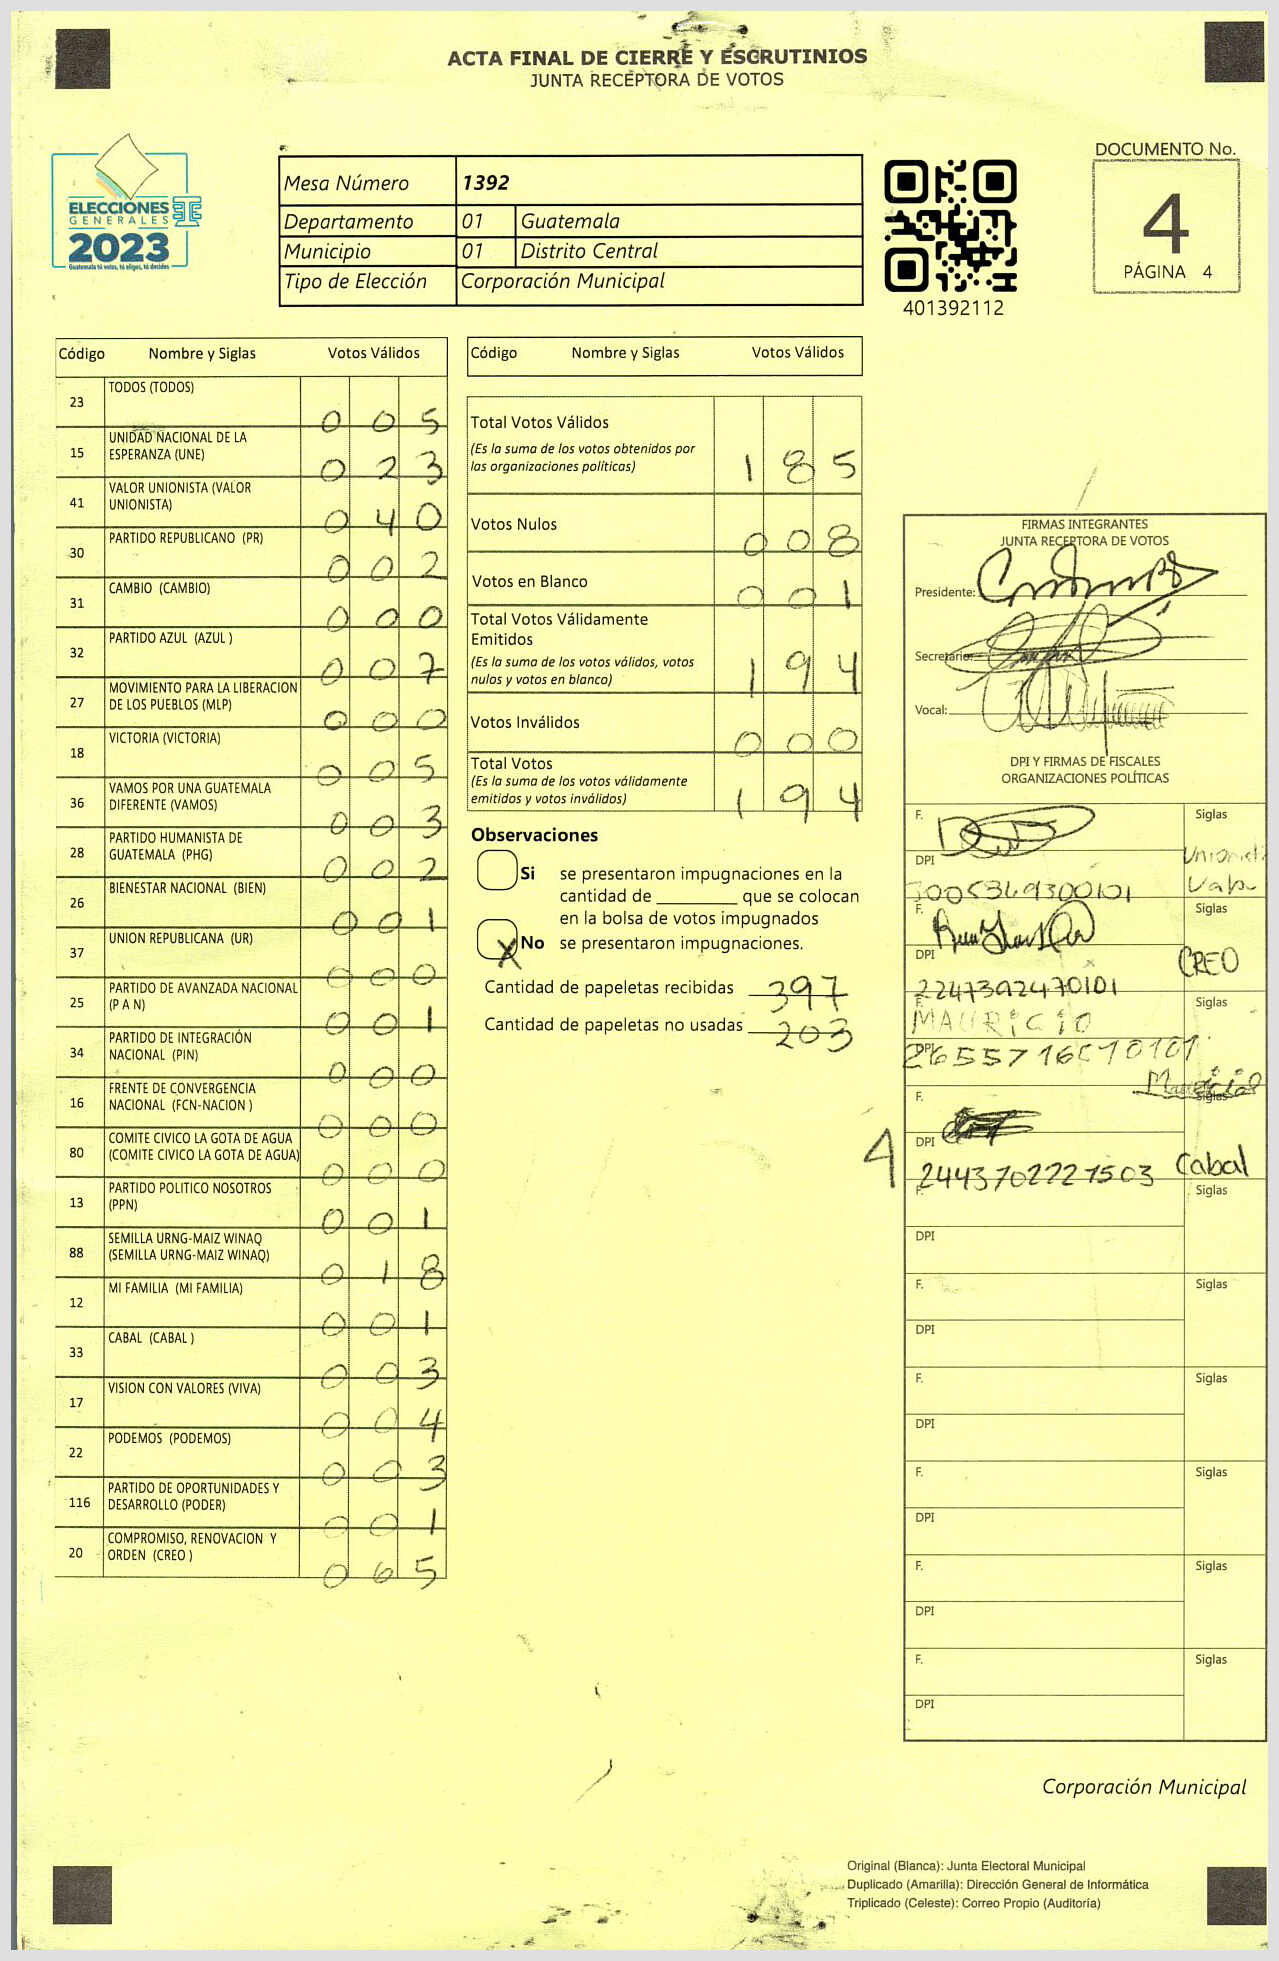 ACTA FINAL DE CIERRE Y ESCRUTINIOS
JUNTA RECEPTORA DE VOTOS
ELECCIONES
GENERALES
2023
Guatemala tú votas, tú eliges, tú decides
Mesa Número 1392
Departamento 01 Guatemala
Municipio 01 Distrito Central
Tipo de Elección Corporación Municipal
401392112
DOCUMENTO No.
4
PÁGINA 4
Código Nombre y Siglas Votos Válidos
23 TODOS (TODOS) 0 0 5
15 UNIDAD NACIONAL DE LA
ESPERANZA (UNE) 0 2 3
41 VALOR UNIONISTA (VALOR
UNIONISTA) 0 4 0
30 PARTIDO REPUBLICANO (PR) 0 0 2
31 CAMBIO (CAMBIO) 0 0 0
32 PARTIDO AZUL (AZUL ) 0 0 7
27 MOVIMIENTO PARA LA LIBERACION
DE LOS PUEBLOS (MLP) 0 0 0
18 VICTORIA (VICTORIA) 0 0 5
36 VAMOS POR UNA GUATEMALA
DIFERENTE (VAMOS) 0 0 3
28 PARTIDO HUMANISTA DE
GUATEMALA (PHG) 0 0 2
26 BIENESTAR NACIONAL (BIEN) 0 0 1
37 UNION REPUBLICANA (UR) 0 0 0
25 PARTIDO DE AVANZADA NACIONAL
(P A N) 0 0 1
34 PARTIDO DE INTEGRACIÓN
NACIONAL (PIN) 0 0 0
16 FRENTE DE CONVERGENCIA
NACIONAL (FCN-NACION ) 0 0 0
80 COMITE CIVICO LA GOTA DE AGUA
(COMITE CIVICO LA GOTA DE AGUA) 0 0 0
13 PARTIDO POLITICO NOSOTROS
(PPN) 0 0 1
88 SEMILLA URNG-MAIZ WINAQ
(SEMILLA URNG-MAIZ WINAQ) 0 1 8
12 MI FAMILIA (MI FAMILIA) 0 0 1
33 CABAL (CABAL ) 0 0 3
17 VISION CON VALORES (VIVA) 0 0 4
22 PODEMOS (PODEMOS) 0 0 3
116 PARTIDO DE OPORTUNIDADES Y
DESARROLLO (PODER) 0 0 1
20 COMPROMISO, RENOVACION Y
ORDEN (CREO ) 0 6 5
Código Nombre y Siglas Votos Válidos
Total Votos Válidos
(Es la suma de los votos obtenidos por
las organizaciones políticas) 1 8 5
Votos Nulos 0 0 8
Votos en Blanco 0 0 1
Total Votos Válidamente
Emitidos
(Es la suma de los votos válidos, votos
nulos y votos en blanco) 1 9 4
Votos Inválidos 0 0 0
Total Votos
(Es la suma de los votos válidamente
emitidos y votos inválidos) 1 9 4
Observaciones
Si se presentaron impugnaciones en la
cantidad de ________ que se colocan
en la bolsa de votos impugnados
X No se presentaron impugnaciones.
Cantidad de papeletas recibidas 397
Cantidad de papeletas no usadas 203
FIRMAS INTEGRANTES
JUNTA RECEPTORA DE VOTOS
Presidente:
Secretario:
Vocal:
DPI Y FIRMAS DE FISCALES
ORGANIZACIONES POLÍTICAS
F. Siglas
DPI
3005369300101
F. Siglas
DPI CREO
2247392470101
F. MAURICIO Siglas
DPI
F. Siglas
DPI
4 2443702221503 Cabal
F. Siglas
DPI
F. Siglas
DPI
F. Siglas
DPI
F. Siglas
DPI
F. Siglas
DPI
F. Siglas
DPI
Corporación Municipal
Original (Blanca): Junta Electoral Municipal
Duplicado (Amarilla): Dirección General de Informática
Triplicado (Celeste): Correo Propio (Auditoría)